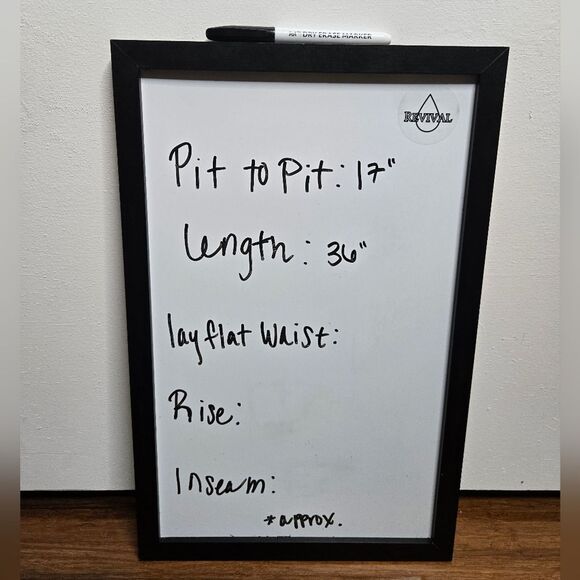 DRY ERASE MARKER
REVIVAL
Pit to Pit: 17"
Length: 36"
lay flat Waist:
Rise:
Inseam:
*approx.